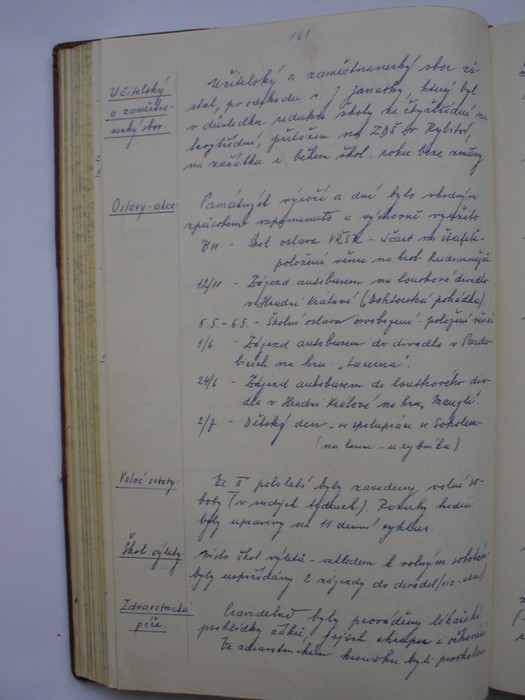 161
Učitelský
a zaměstna-
necký sbor
Učitelský a zaměstnanecký sbor zů-
stal, po odchodu s. J. Janatky, který byl
v důsledku redukce školy ze čtyřtřídní na
trojtřídní, přeložen na ZDŠ
na začátku i během škol. roku beze změny
Oslavy-akce
Památných výročí a dní bylo vhodným
způsobem vzpomenuto a výchovně využito
7/11 - Škol oslava VŘSR - účast na štafetě
položení věnce na hrob Rudoarmějců
12/11 - Zájezd autobusem na loutkové divadlo
v Hradci Králové (Doktorská pohádka).
5.5.-6.5. - Školní oslava osvobození - položení věnců
1/6 - Zájezd autobusem do divadla v Pardu-
bicích na hru "Lucerna".
24/6 - Zájezd autobusem do loutkového diva-
dla v Hradci Králové na hru, Mauglí.
2/7 - Dětský den - ve spolupráci se Sokolem
(na louce - u rybníka)
Volné soboty
Ve II pololetí byly zavedeny volné so-
boty (v sudých týdnech). Rozvrhy hodin
byly upraveny na 11 denní cyklus
Škol výlety
Místo škol výletů - vzhledem k volným sobotám
byly uspořádány 2 zájezdy do divadel (viz - akce)
Zdravotnická
péče
Pravidelně byly prováděny lékařské
prohlídky žáků, jejich chrupu a očkování
Ve zdravotnickém kroužku byli proškoleni